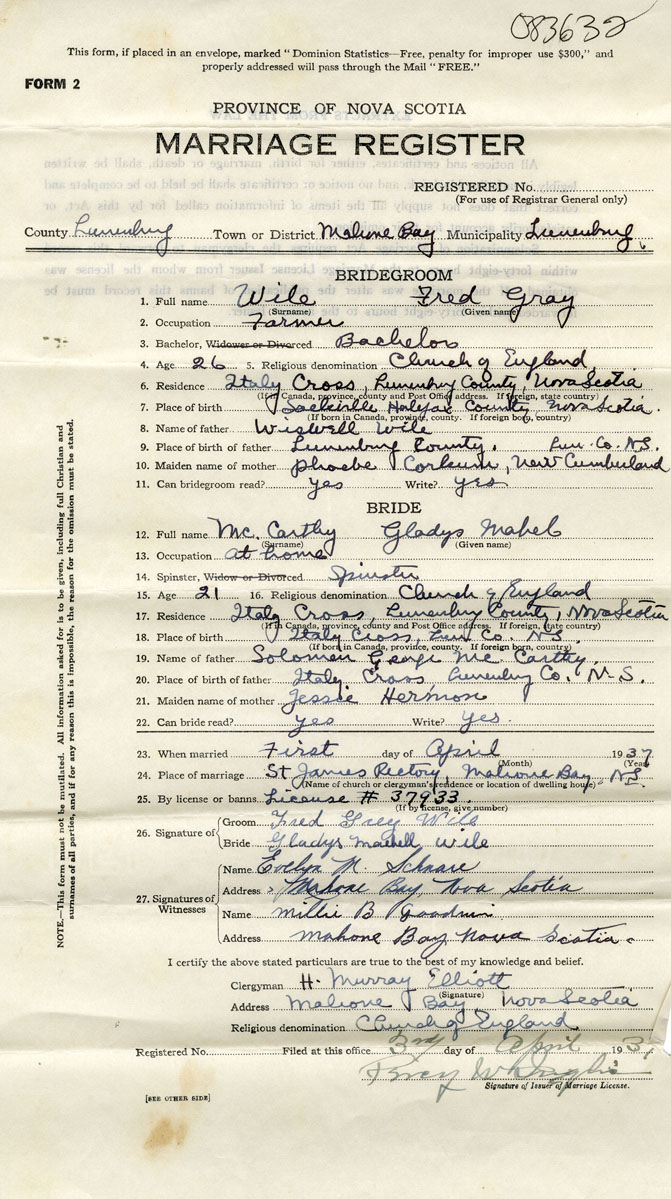 083632
This form, if placed in an envelope, marked "Dominion Statistics—Free, penalty for improper use $300," and
properly addressed will pass through the Mail "FREE."
FORM 2
PROVINCE OF NOVA SCOTIA
MARRIAGE REGISTER
REGISTERED No.
(For use of Registrar General only)
County Lunenburg Town or District Mahone Bay Municipality Lunenburg
BRIDEGROOM
1. Full name Wile Fred Gray
(Surname) (Given name)
2. Occupation Farmer
3. Bachelor, Widower or Divorced Bachelor
4. Age 26 5. Religious denomination Church of England
6. Residence Italy Cross, Lunenburg County, Nova Scotia
(If in Canada, province, county and Post Office address. If foreign, state country)
7. Place of birth Sackville Halifax County Nova Scotia.
(If born in Canada, province, county. If foreign born, country)
8. Name of father Wiswell Wile
9. Place of birth of father Lunenburg County. Lun. Co. N.S.
10. Maiden name of mother Phoebe Corkum, New Cumberland
11. Can bridegroom read? yes Write? yes
BRIDE
12. Full name Mc.Carthy Gladys Mabel
(Surname) (Given name)
13. Occupation at home
14. Spinster, Widow or Divorced Spinster
15. Age 21 16. Religious denomination Church of England
17. Residence Italy Cross, Lunenburg County, Nova Scotia
(If in Canada, province, county and Post Office address. If foreign, state country)
18. Place of birth Italy Cross, Lun. Co. N.S.
(If born in Canada, province, county. If foreign born, country)
19. Name of father Solomon George Mc Carthy.
20. Place of birth of father Italy Cross, Lunenburg Co. N.S.
21. Maiden name of mother Jessie Hermon
22. Can bride read? yes Write? yes.
23. When married First day of April 1937
(Month) (Year)
24. Place of marriage St James Rectory, Mahone Bay, N.S.
(Name of church or clergyman's residence or location of dwelling house)
25. By license or banns License # 37933.
(If by license, give number)
26. Signature of Groom Fred Grey Wile
Bride Gladys Wile
27. Signatures of Witnesses Name Evelyn M. Schnare
Address Mahone Bay, Nova Scotia
Name Millie B Goodwin
Address Mahone Bay Nova Scotia.
I certify the above stated particulars are true to the best of my knowledge and belief.
Clergyman H. Murray Elliott
(Signature)
Address Mahone Bay, Nova Scotia
Religious denomination Church of England
Registered No. Filed at this office 3rd day of April 193
Signature of Issuer of Marriage License.
[SEE OTHER SIDE]
NOTE.—This form must not be mutilated. All information asked for is to be given, including full Christian and
surnames of all parties, and if for any reason this is impossible, the reason for the omission must be stated.